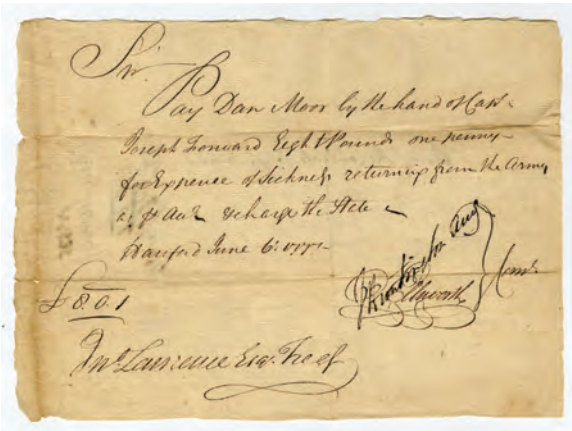 Sir.
Pay Dan Moor by the hand of Capt.
Joseph Forward Eight Pounds one penny
for Expence of Sickness returning from the Army
as pr Acct. & charge the State
Hartford June 6:
£ 8. 0. 1
Ellsworth
Comtt.
Jno Lawrence Esqr. Treasr